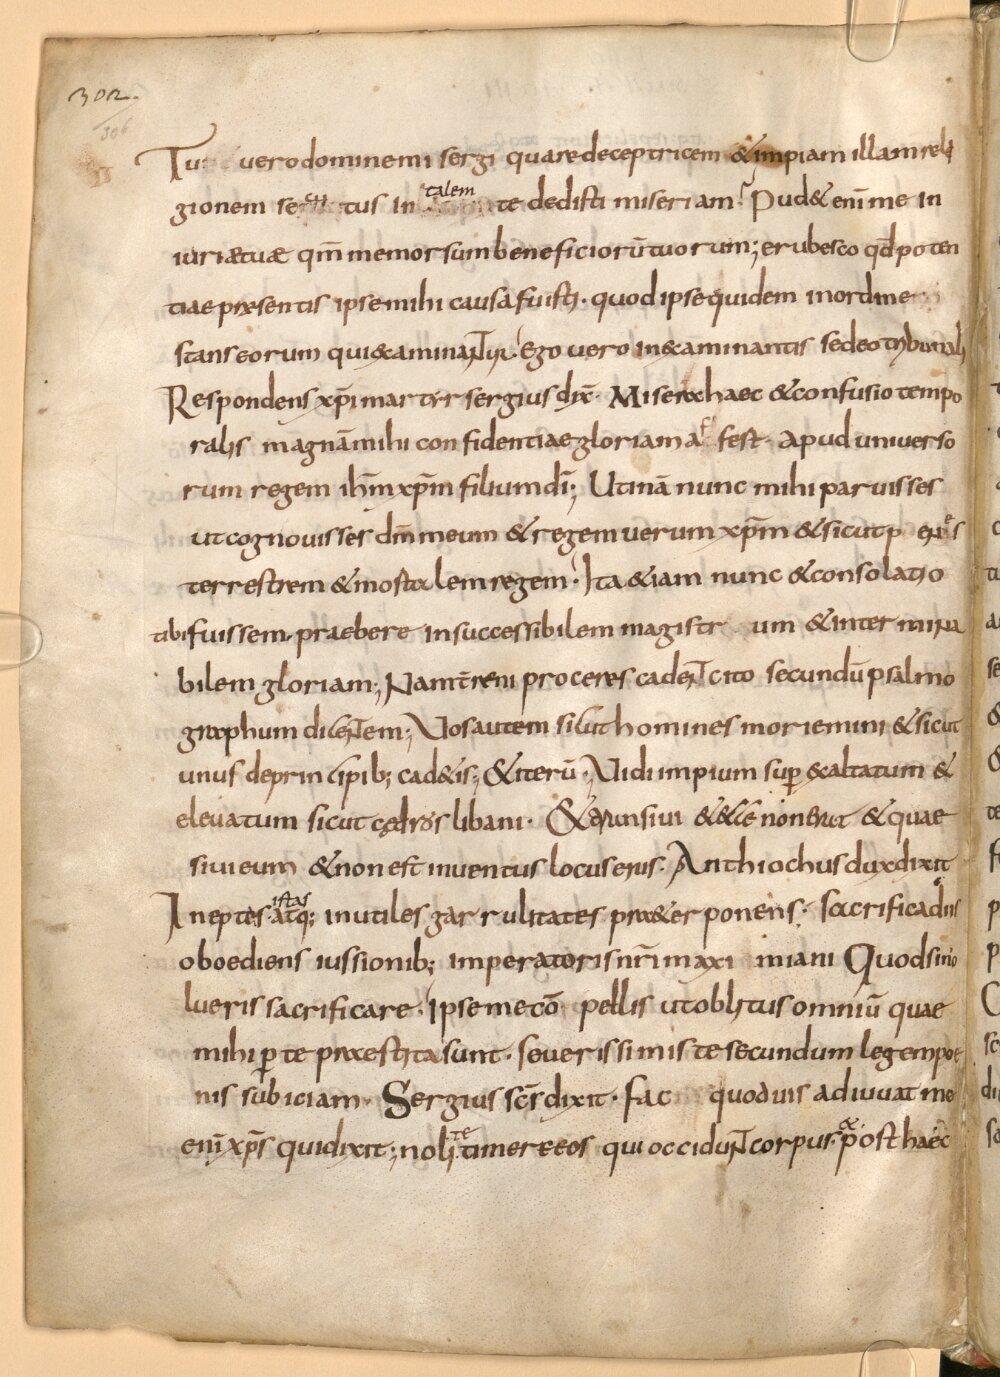 302.
306
Tu vero domine mi sergi quare deceptricem & impiam illam reli
gionem secutus in talem te dedisti miseriam? Pud& enī me in
iuriae tuae qm̄ memor sum beneficiorū tuorum; erubesco qd̄ poten
tiae praesentis ipse mihi causa fuisti · quod ipse quidem in ordine
stans eorum qui examinant̄ur. Ego vero in examinantis sedeo tribunali
Respondens xp̄i martyr sergius dix̄. Miserax haec & confusio tempo
ralis magnā mihi confidentiae gloriam a fest · apud universo
rum regem ihm̄ xpm̄ filium dī; Utinā nunc mihi paruisses
ut cognouisses dm̄ meum & regem uerum xpm̄ & sicut
terrestrem & mortalem regem · Ita &iam nunc & consolatio
tibi fuissem · praebere insuccessibilem magistr um & intermina
bilem gloriam; Nam t̄reni proceres cadent cito secundū psalmo
graphum dicentem; Vos autem sicut homines moriemini & sicut
unus de principib; cad&is; & iterū · Vidi impium sup̱ exaltatum &
eleuatum sicut cedros libani · & & ecce non erat & quae
siui eum & non est inuentus locus eius. Anthiochus dux dixit
Ineptes istas atq; inutiles garrulitates praeter ponens · sacrifica diis
oboediens iussionib; imperatoris nr̄i maxi miani Quod si no
lueris sacrificare · Ipse me cō pellis ut oblitus omniū quae
mihi p̱ te praestita sunt · seuerissimis te secundum legem poe
nis subiciam · Sergius scs̄ dixit · fac quod uis adiuuat me
enī xps̄ qui dixit; nolite timere eos qui occidunt corpus · & post haec